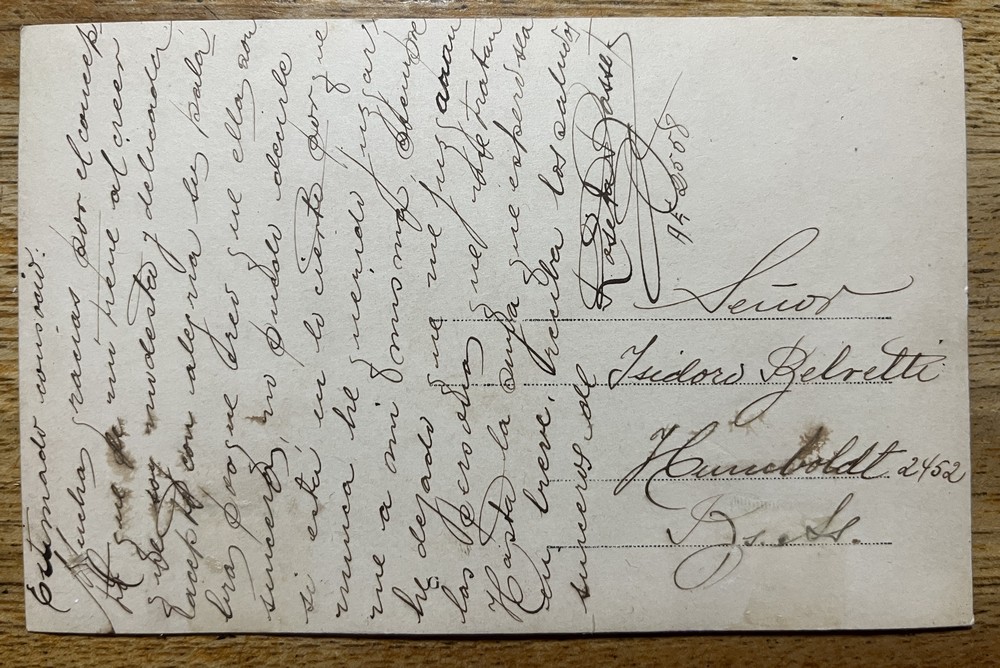 Estimado consocio:
Muchas gracias por el concep
to que de mi tiene al creer
me modesta y delicada;
acepto con alegría su pala
bra porque creo que ella son
sincera, no puedo decirle
si está en lo cierto porque
nunca he querido juzgar
me a mi misma, siempre
he dejado que me juzguen
las personas que me tratan
Hasta la suya que espero sea
en breve, reciba los saludos
sinceros de
Roseta
Señor
Isidoro Belvetti
Humboldt 2452
Bs. As.